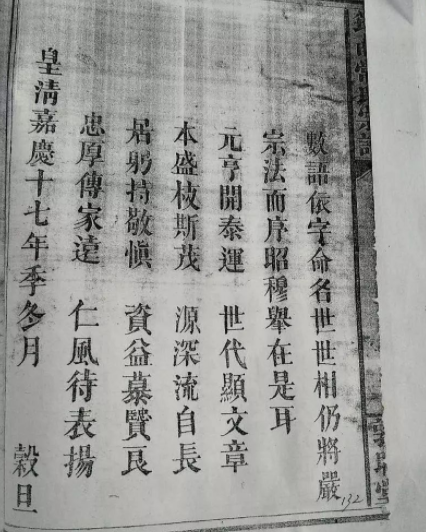 數語依字命名世世相仍將嚴
宗法而序昭穆舉在是耳
元亨開泰運 世代顯文章
本盛枝斯茂 源深流自長
居躬持敬慎 資益慕賢良
忠厚傳家遠 仁風待表揚
皇清嘉慶十七年季冬月 穀旦
192